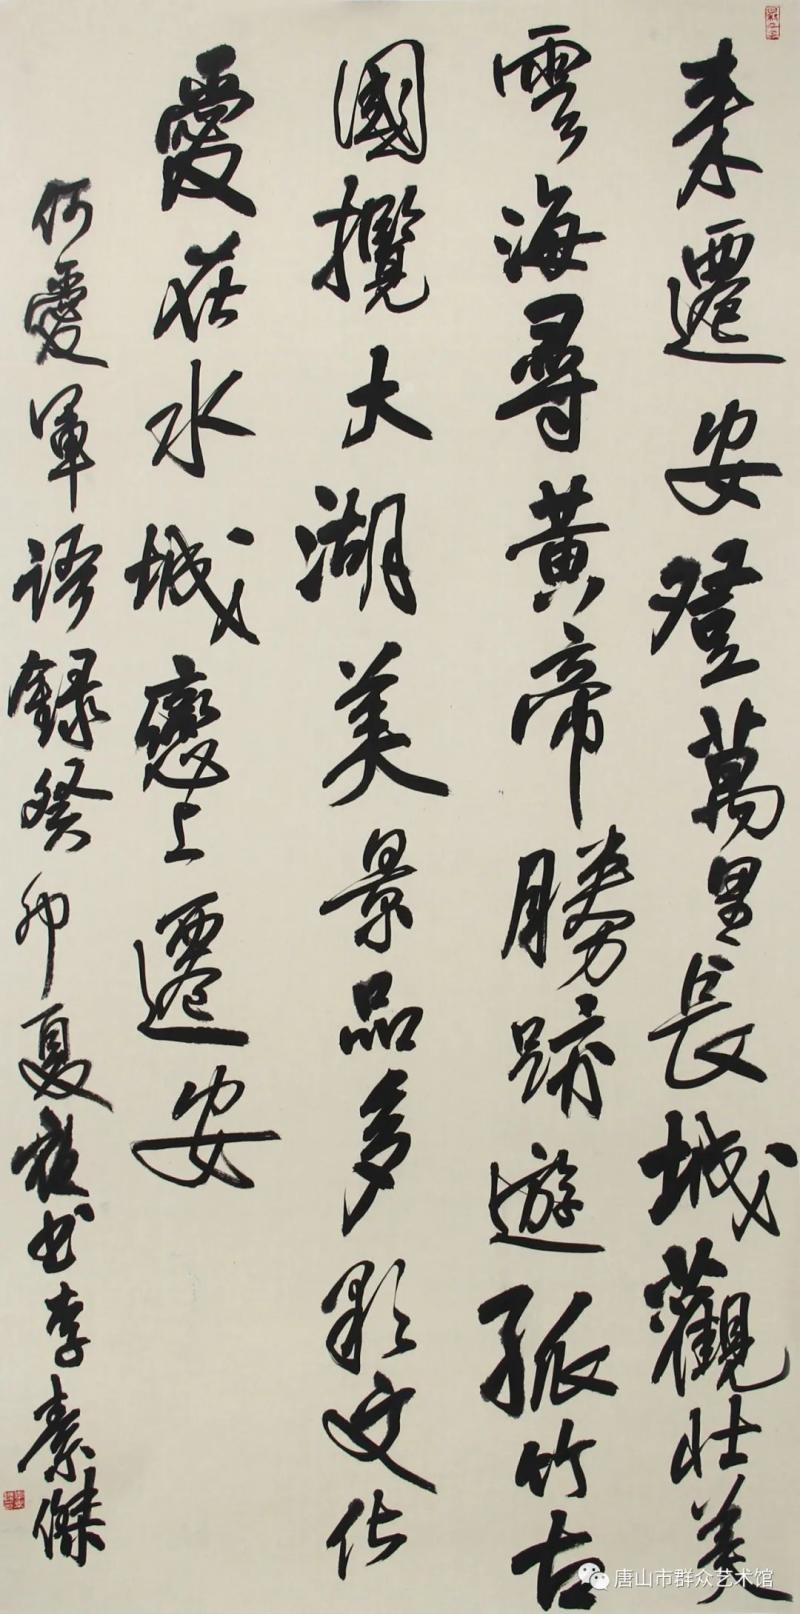 来遷安登萬里長城觀壮美
雲海尋黃帝勝跡遊孤竹古
國攬大湖美景品多彩文化
愛在水城戀上遷安
何愛軍语錄癸卯夏敬书李素傑
唐山市群众艺术馆